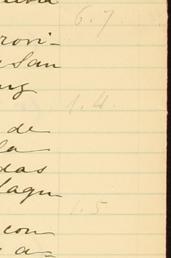 6.7.
rovi-
San
ng
1.4.
de
la
das
lagu
1.5
con
a-